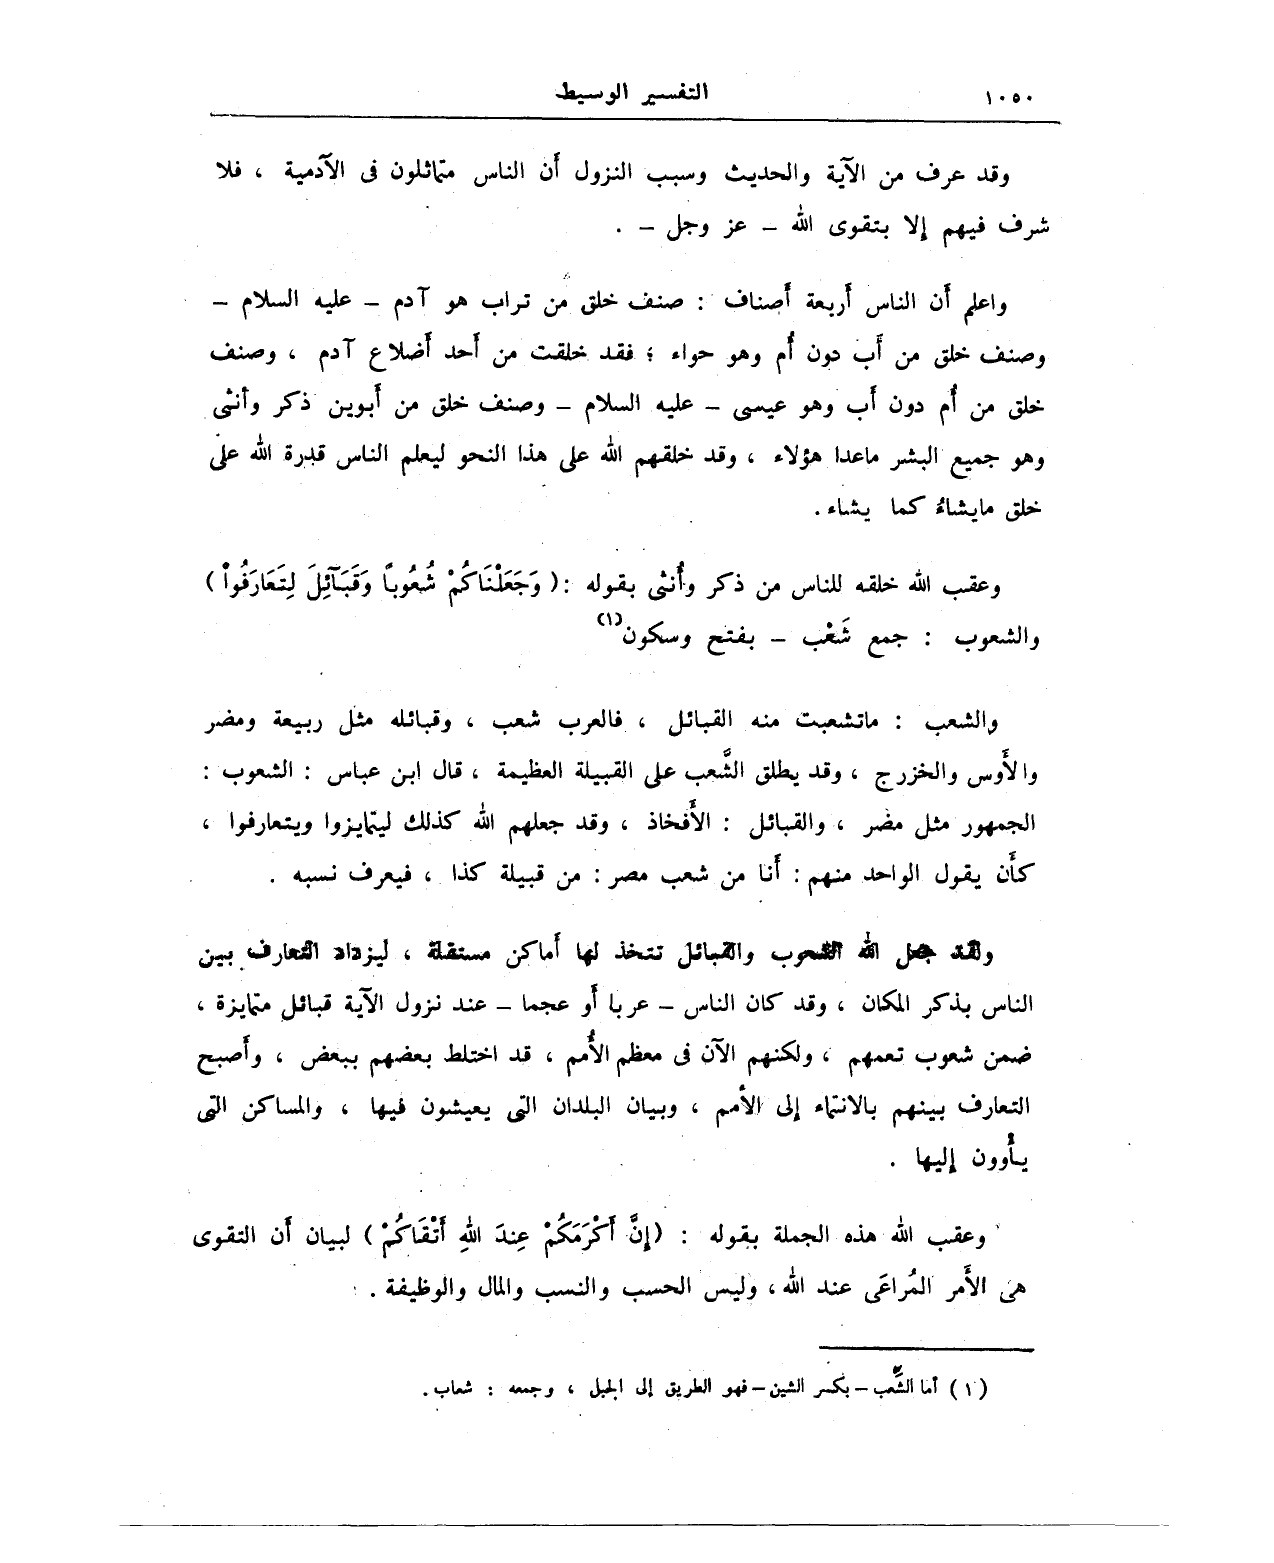 ١٠٥٠ التفسير الوسيط
وقد عرف من الآية والحديث وسبب النزول أن الناس متماثلون فى الآدمية ، فلا
شرف فيهم إلا بتقوى الله – عز وجل – .
واعلم أن الناس أربعة أصناف : صنف خلق من تراب هو آدم – عليه السلام –
وصنف خلق من أب دون أُم وهو حواء ؛ فقد خلقت من أحد أضلاع آدم ، وصنف
خلق من أُم دون أب وهو عيسى – عليه السلام – وصنف خلق من أبوين ذكر وأنثى
وهو جميع البشر ماعدا هؤلاء ، وقد خلقهم الله على هذا النحو ليعلم الناس قدرة الله على
خلق مايشاءُ كما يشاء .
وعقب الله خلقه للناس من ذكر وأُنثى بقوله : ( وَجَعَلْنَاكُمْ شُعُوباً وَقَبَآئِلَ لِتَعَارَفُواْ )
والشعوب : جمع شَعْب – بفتح وسكون(١)
والشعب : ماتشعبت منه القبائل ، فالعرب شعب ، وقبائله مثل ربيعة ومضر
والأَوس والخزرج ، وقد يطلق الشَّعب على القبيلة العظيمة ، قال ابن عباس : الشعوب :
الجمهور مثل مضر ، والقبائل : الأَفخاذ ، وقد جعلهم الله كذلك ليتمايزوا ويتعارفوا ،
كأَن يقول الواحد منهم : أَنا من شعب مصر : من قبيلة كذا ، فيعرف نسبه .
ولقد جعل الله الشعوب والقبائل تتخذ لها أَماكن مستقلة ، ليزداد التعارف بين
الناس بذكر المكان ، وقد كان الناس – عربا أَو عجما – عند نزول الآية قبائل متمايزة ،
ضمن شعوب تعمهم ، ولكنهم الآن فى معظم الأُمم ، قد اختلط بعضهم ببعض ، وأَصبح
التعارف بينهم بالانتماء إلى الأمم ، وبيان البلدان التى يعيشون فيها ، والمساكن التى
يأْوون إليها .
وعقب الله هذه الجملة بقوله : ( إِنَّ أَكْرَمَكُمْ عِندَ اللهِ أَتْقَاكُمْ ) لبيان أَن التقوى
هى الأَمر المُراعَى عند الله ، وليس الحسب والنسب والمال والوظيفة .
( ١ ) أما الشِّعب – بكسر الشين – فهو الطريق إلى الجبل ، وجمعه : شعاب .